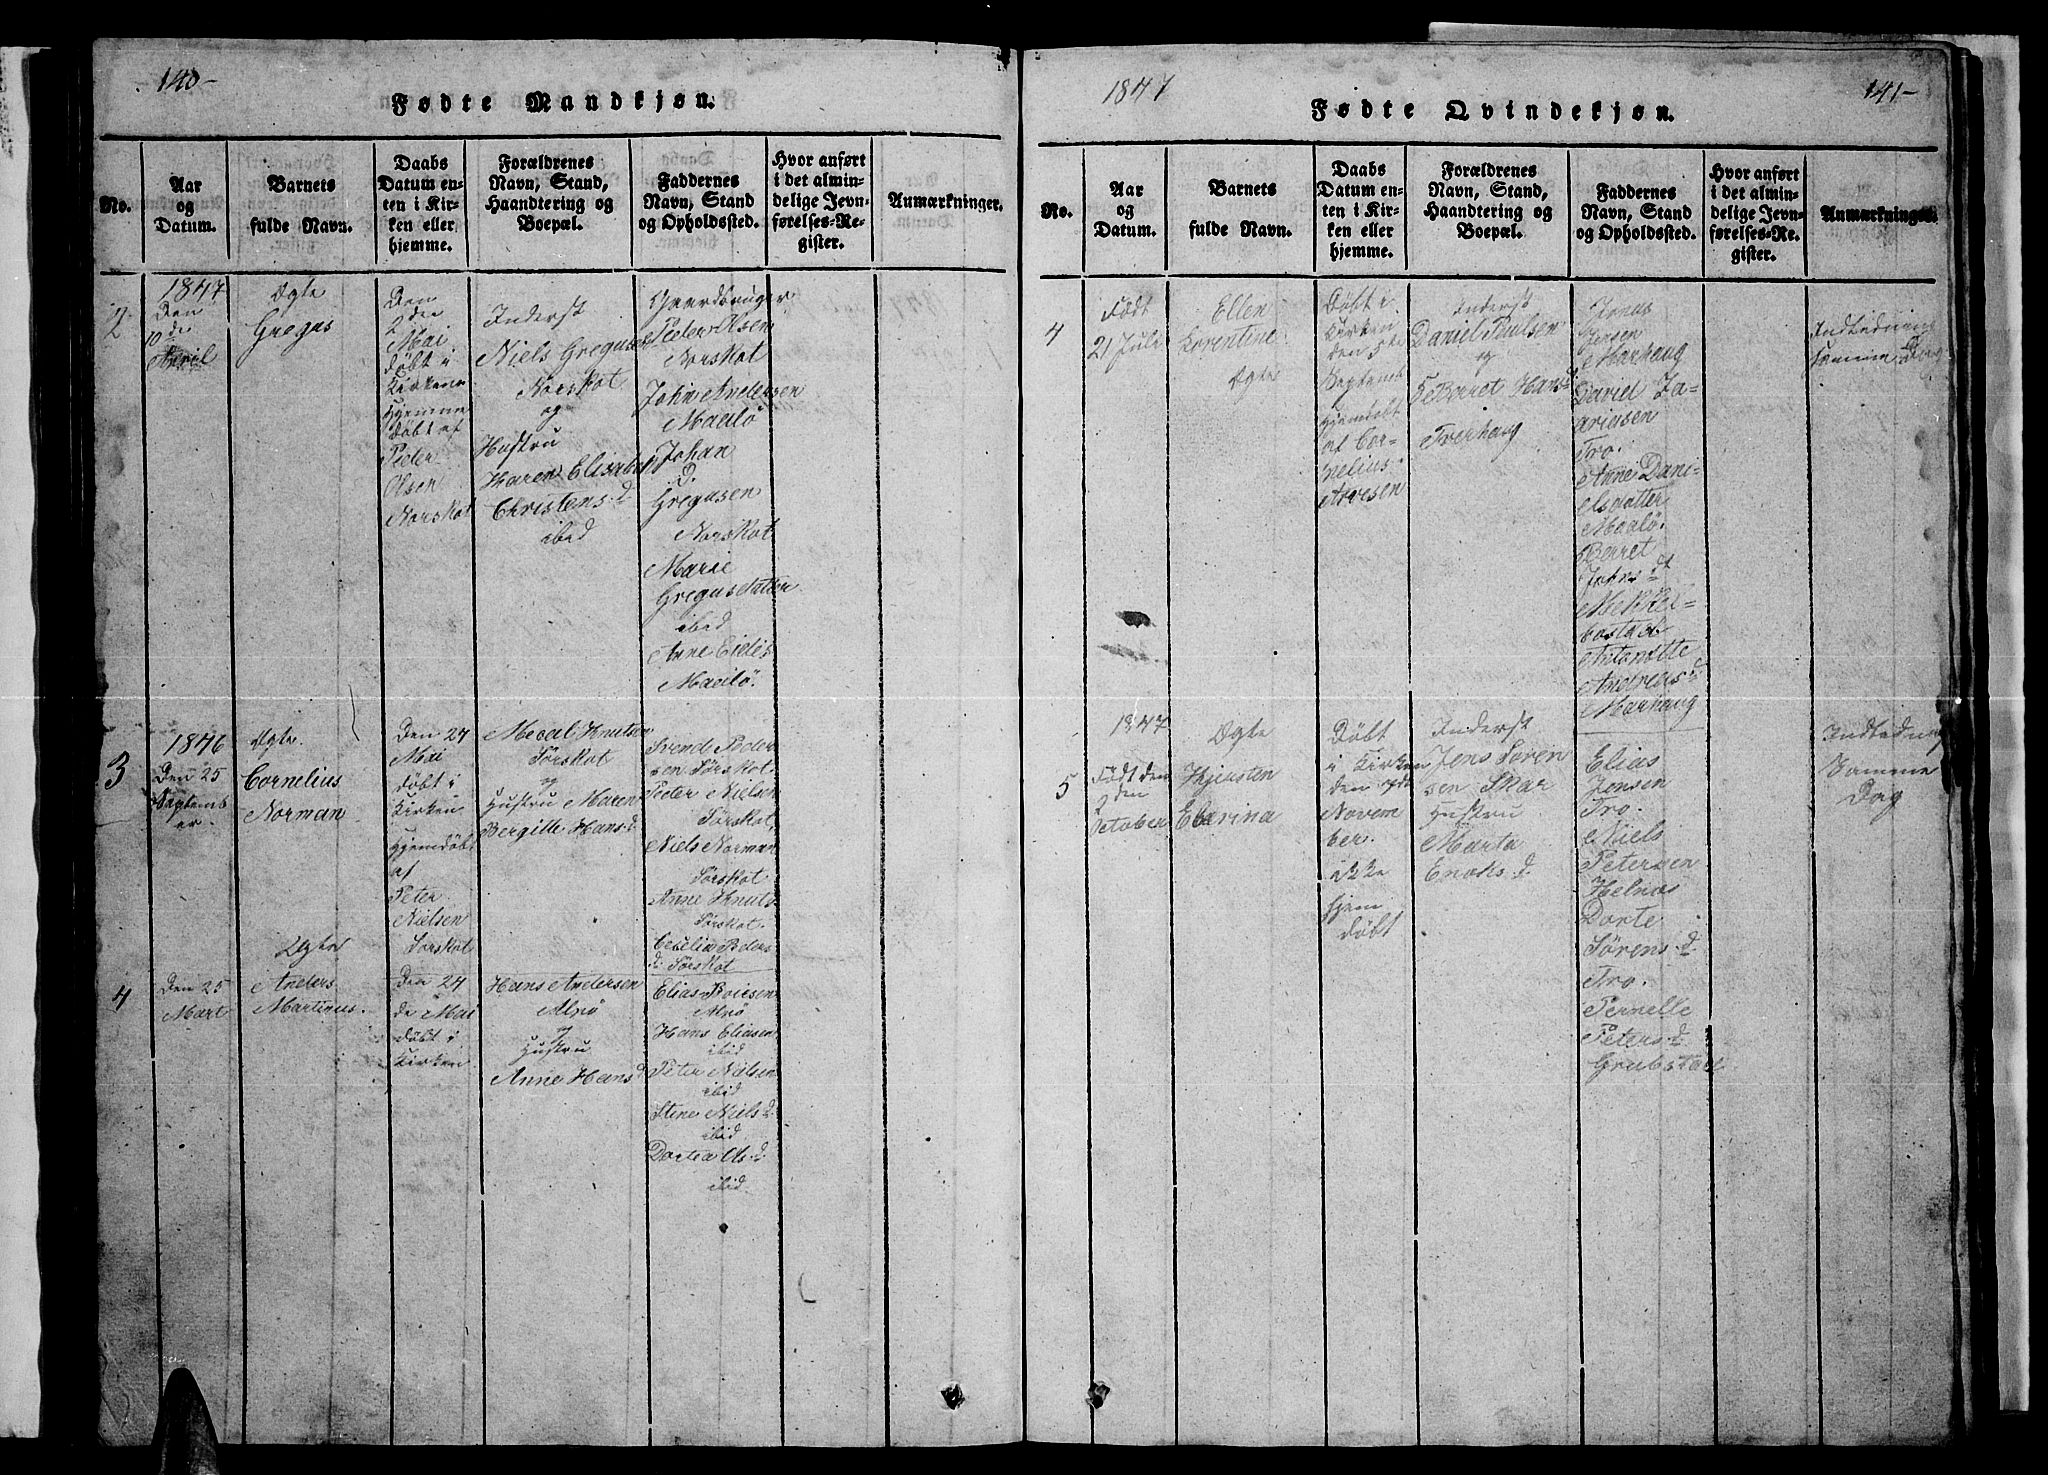 140-
Fødte Mandkjøn.
No.
Aar
og
Datum.
Barnets
fulde Navn.
Daabs
Datum en-
ten i Kir-
ken eller
hjemme.
Forældrenes
Navn, Stand,
Haandtering og
Boepæl.
Faddernes
Navn, Stand
og Opholdssted.
Hvor anført
i det almin-
delige Jevn-
førelses-Re-
gister.
Anmærkninger.
2
1847
Den
10de
April
Ægte
Gregus
Den
2den
Mai
døbt i
Kirken
Hjemme
døbt af
Peder
Olsen
Norskot
Inderst
Niels Gregusen
Norskot
og
Hustru
Karen Elisabeth
Christens d.
ibid
Peder Olsen
Norskot
John Andersen
Maalø
Johan
D.
Gregusen
Norskot
Marie
Gregusdatter
ibid
Anne
Maalø.
3
1846
Den 25
Septemb
er.
Ægte.
Cornelius
Norman
Den 24
Mai
døbt i
Kirken
Hjemdøbt
af
Peter
Nielsen
Sørskot
Knutsen
Sørskot
og
Hustru Maren
Bergitte Hans d.
Svend Peder
sen Sørskot
Peder Nielsen
Sørskot
Niels Norman
Sørskot
Anne Knuts
Sørskot.
Peders
d. Sørskot
4
Den 25
Mart
Ægte
Anders
Martinus.
Den 24
de Mai
døbt i
Kirken
Hans Andersen
Alnø
og
Hustru
Anne Hans d
Elias Boiesen
Alnø
Hans Eliasen
ibid
Peter Nielsen
ibid
Stine Niels d.
ibid
Dortea Ols. d.
ibid
1847
141-
Fødte Qvindekjøn.
No.
Aar
og
Datum.
Barnets
fulde Navn.
Daabs
Datum en-
ten i Kir-
ken eller
hjemme.
Forældrenes
Navn, Stand,
Haandtering og
Boepæl.
Faddernes
Navn, Stand
og Opholdssted.
Hvor anført
i det almin-
delige Jevn-
førelses-Re-
gister.
Anmærkninger.
4
Født
21 Juli
Ellen
Lorentine.
Ægte
Døbt i
Kirken
den 5te
Septemb
Hjemdøbt
af Cor-
nelius
Arvesen
Inderst
Daniel Paulsen
og
Berret Hans d
Tverhaug
Jonas
Jensen
Marhaug
David Za-
ariasen
Tro.
Anne Dani-
elsdatter
Maalø.
Berret
Johns d
Mekkel-
bostad
Antonette
Andreas d
Marhaug
Indledning
samme Dag
5
1847
Født den
2den
October
Ægte
Kjersten
Elarina
Døbt
i Kirken
den
Novem
ber.
ikke
hjem
døbt
Inderst
Jens Soren
sen Skar
Hustru
Marta
Enoks. d
Elias
Jensen
Tro.
Niels
Petersen
Helnæs
Dorte
Sørens. d.
Tro.
Pernelle
Peters. d.
Indledning
Samme
Dag